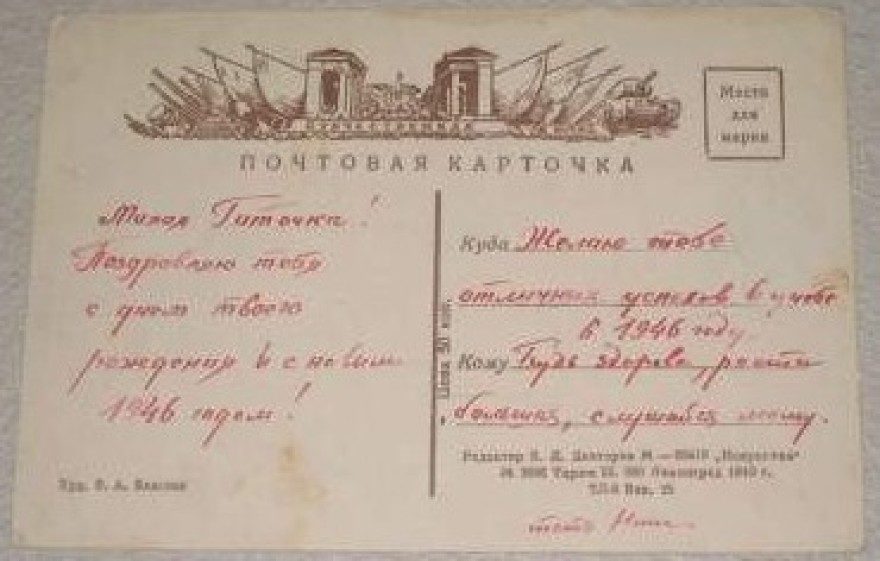 ПОЧТОВАЯ КАРТОЧКА
Место
для
марки
Милая Титочка!
Поздравляю тебя
с днем твоего
рождения и с новым
1946 годом!
Худ.
Цена 50 коп.
Куда Желаю тебе
отличных успехов в учебе
в 1946 году.
Кому Будь здорова, расти
большая, слушайся маму.
Редактор „Искусство“
Ленинград
тетя